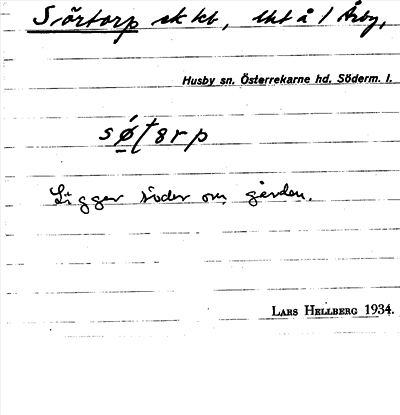 Sörtorp sk kb, lht å 1 Årby,
Husby sn. Österrekarne hd, Söderm. l.
Ligger söder om gården.
LARS HELLBERG 1934.